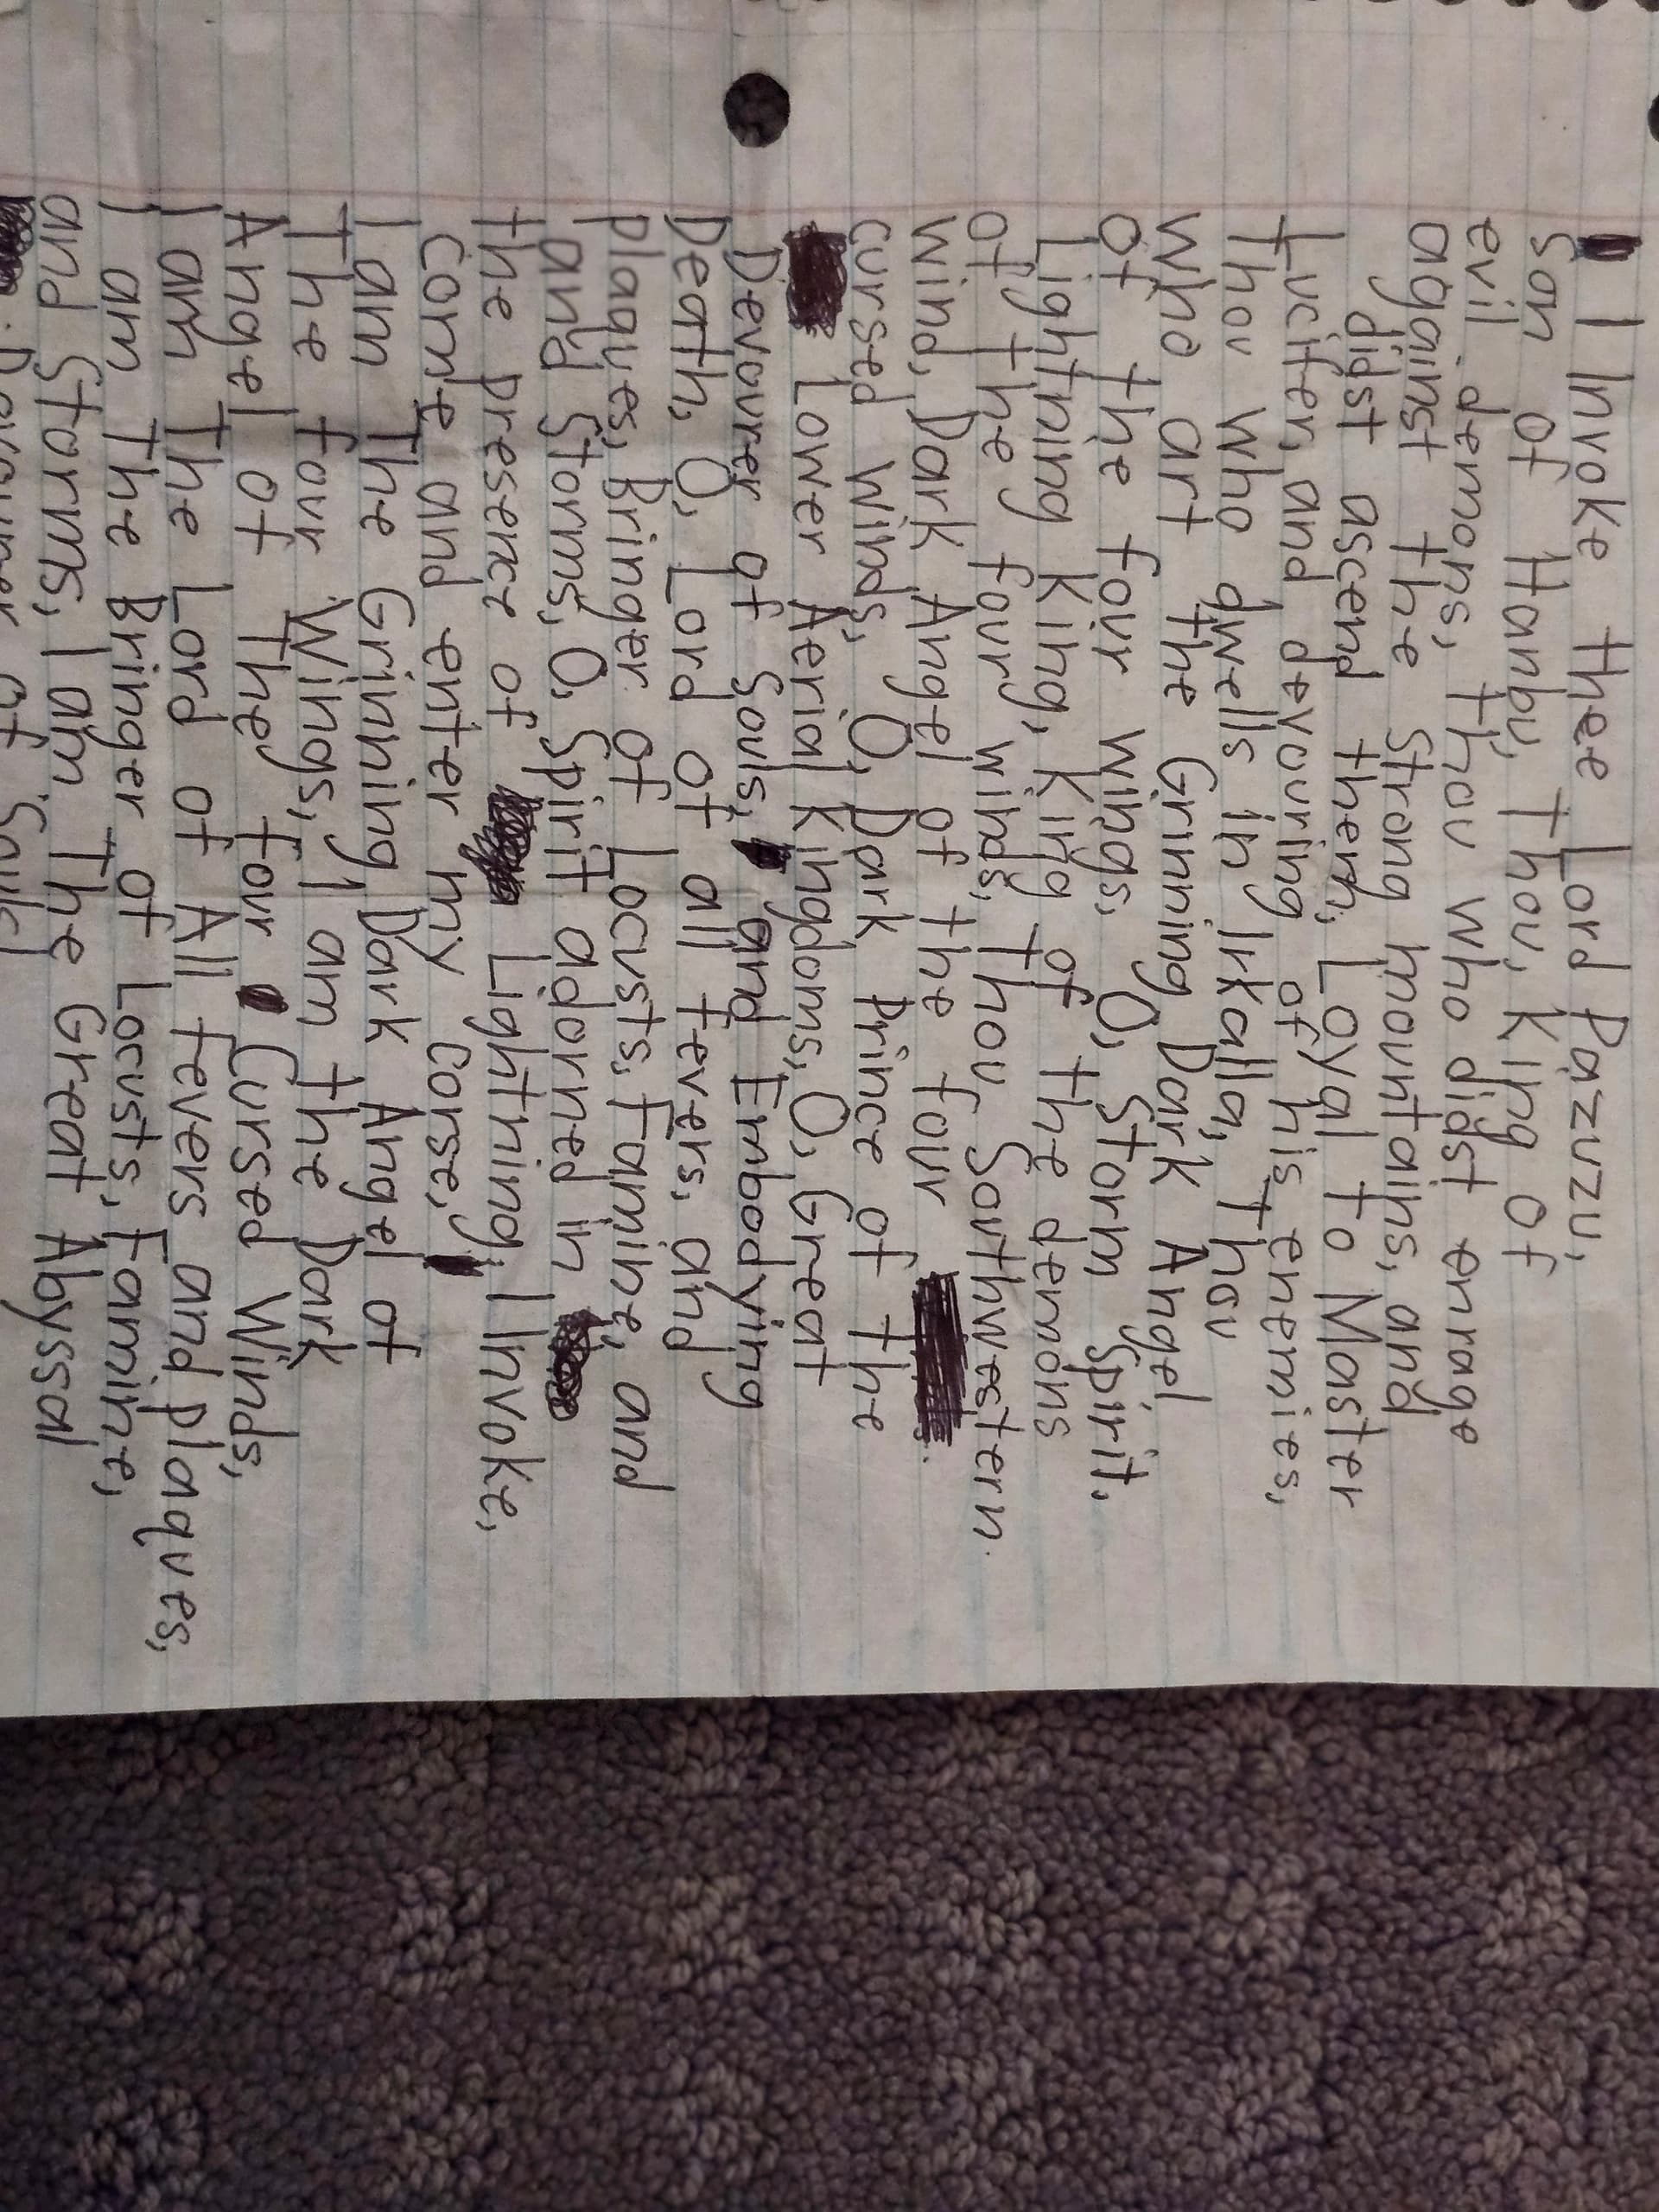 I Invoke thee Lord Pazuzu,
Son of Hanbu, Thou, King Of
evil demons, thou who didst enrage
against the strong mountains, and
didst ascend them, Loyal to Master
Lucifer, and devouring of his enemies,
Thou who dwells in Irkalla, Thou
who art the Grinning Dark Angel,
Of the four wings, O, Storm Spirit,
Lightning King, King of the demons
of the four winds, thou Southwestern
wind, Dark Angel of the four
cursed winds, O, Dark Prince of the
Lower Aerial Kingdoms, O, Great
Devourer of Souls, and Embodying
Death, O, Lord Of all fevers, and
plaques, Bringer Of Locusts, Famine, and
and Storms, O, Spirit adorned in
the presence of Lightning, I Invoke,
come and enter my corse,
I am The Grinning Dark Angel of
The four Wings, I am the Dark
Angel of the four Cursed Winds,
I am The Lord of All fevers and plaques,
I am the Bringer of Locusts, Famine,
and Storms, I am The Great Abyssal
Of Souls